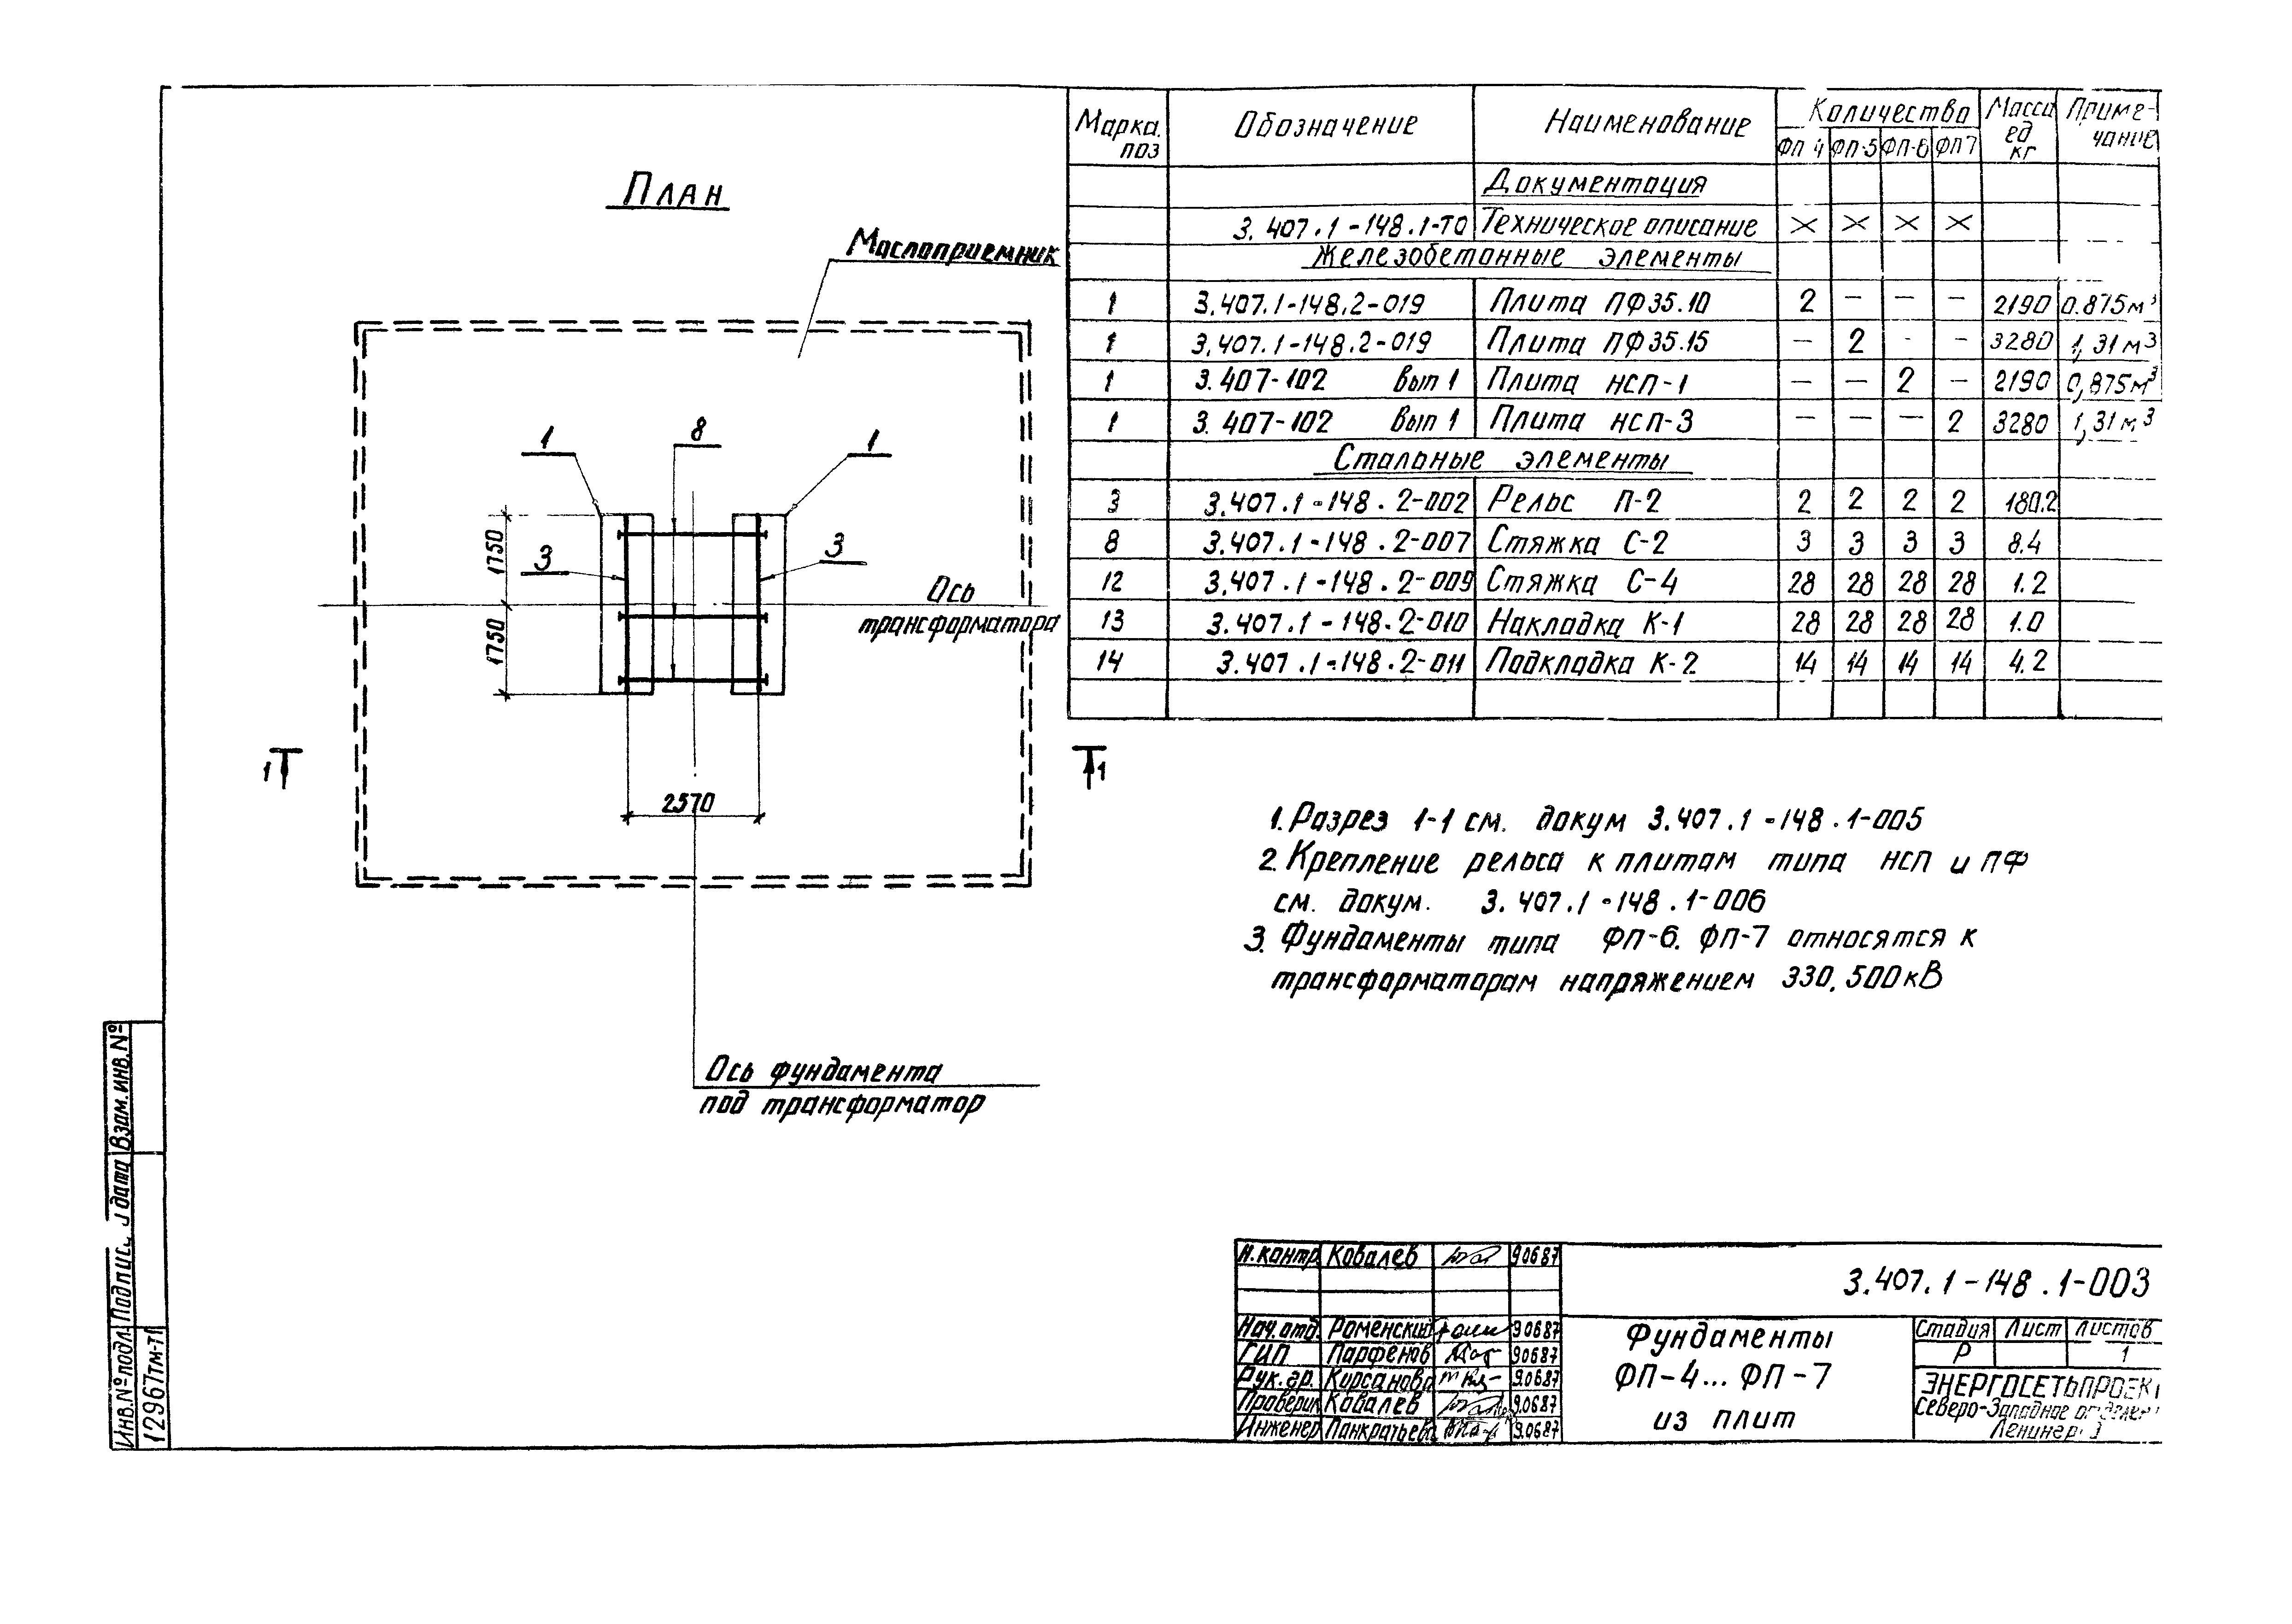 План
Маслоприемник
1
8
1
3
3
1750
1750
Ось
трансформатора
1
1
2570
Ось фундамента
под трансформатор
Марка. поз | Обозначение | Наименование | Количество | Масса ед кг | Приме-чание
ФП 4 | ФП-5 | ФП-6 | ФП 7
Документация
3.407.1-148.1-ТО | Техническое описание | × | × | × | ×
Железобетонные элементы
1 | 3.407.1-148.2-019 | Плита ПФ35.10 | 2 | – | – | – | 2190 | 0.875м³
1 | 3.407.1-148.2-019 | Плита ПФ35.15 | – | 2 | - | – | 3280 | 1,31м³
1 | 3.407-102 Вып 1 | Плита НСП-1 | – | – | 2 | – | 2190 | 0,875м³
1 | 3.407-102 Вып 1 | Плита НСП-3 | – | – | – | 2 | 3280 | 1,31м³
Стальные элементы
3 | 3.407.1-148.2-002 | Рельс П-2 | 2 | 2 | 2 | 2 | 180.2
8 | 3.407.1-148.2-007 | Стяжка С-2 | 3 | 3 | 3 | 3 | 8.4
12 | 3.407.1-148.2-009 | Стяжка С-4 | 28 | 28 | 28 | 28 | 1.2
13 | 3.407.1-148.2-010 | Накладка К-1 | 28 | 28 | 28 | 28 | 1.0
14 | 3.407.1-148.2-011 | Подкладка К-2 | 14 | 14 | 14 | 14 | 4.2
1. Разрез 1-1 см. докум 3.407.1-148.1-005
2. Крепление рельса к плитам типа НСП и ПФ
см. докум. 3.407.1-148.1-006
3. Фундаменты типа ФП-6. ФП-7 относятся к
трансформаторам напряжением 330.500кВ
Инв.№подл. Подпись и дата Взам.инв.№
12967тм-т1
Н.контр. Ковалев 90687
Нач.отд. Роменский 90687
ГИП Парфенов 90687
Рук.гр. Кирсанова 9.0687
Проверил Ковалев 90687
Инженер Панкратьева 9.0687
3.407.1-148.1-003
Фундаменты
ФП-4... ФП-7
из плит
Стадия Лист Листов
Р 1
ЭНЕРГОСЕТЬПРОЕКТ
Северо-Западное